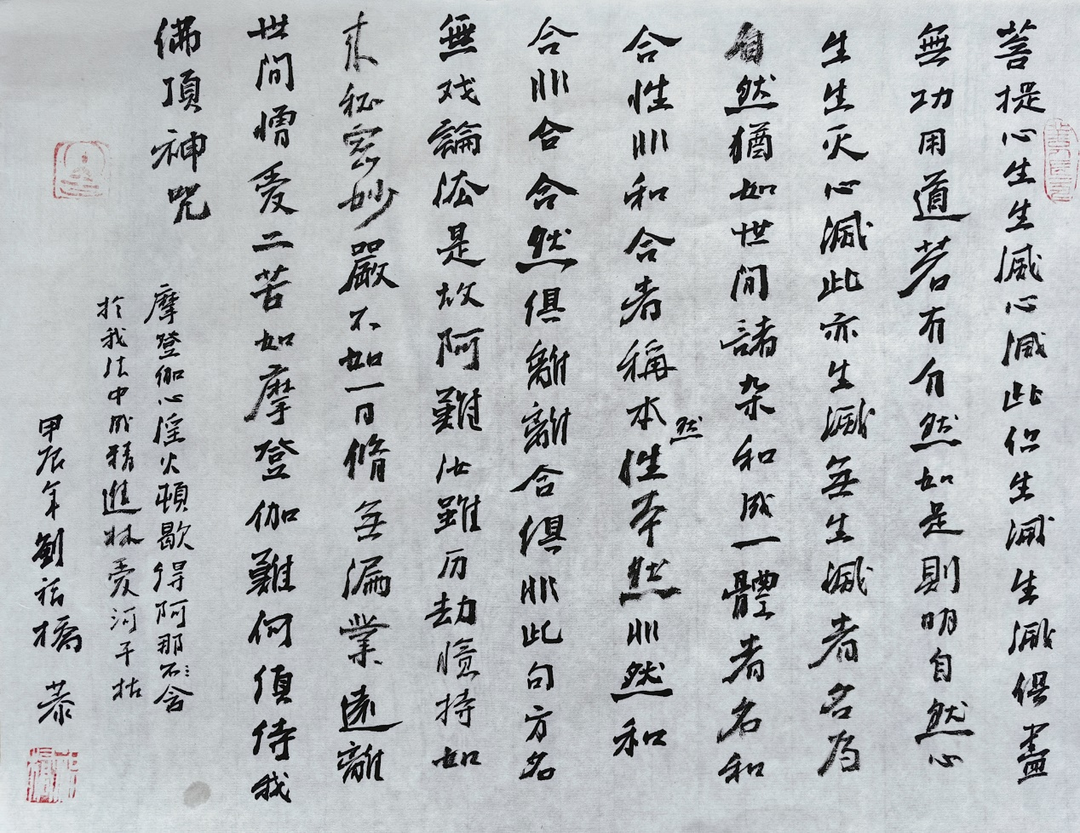 菩提心生生滅心滅此但生滅生滅俱盡
無功用道若有自然如是則明自然心
生生灭心滅此亦生滅無生滅者名为
自然猶如世间諸杂和成一體者名和
合性非和合者稱本然性本然非然和
合非合合然俱離離合俱非此句方名
無戏論法是故阿難汝雖历劫憶持如
来秘密妙嚴不如一日脩無漏業遠離
世间憎愛二苦如摩登伽難何須待我
佛頂神咒
摩登伽心淫火頓歇得阿那含
於我法中成精進林愛河干枯
甲辰年劉
恭